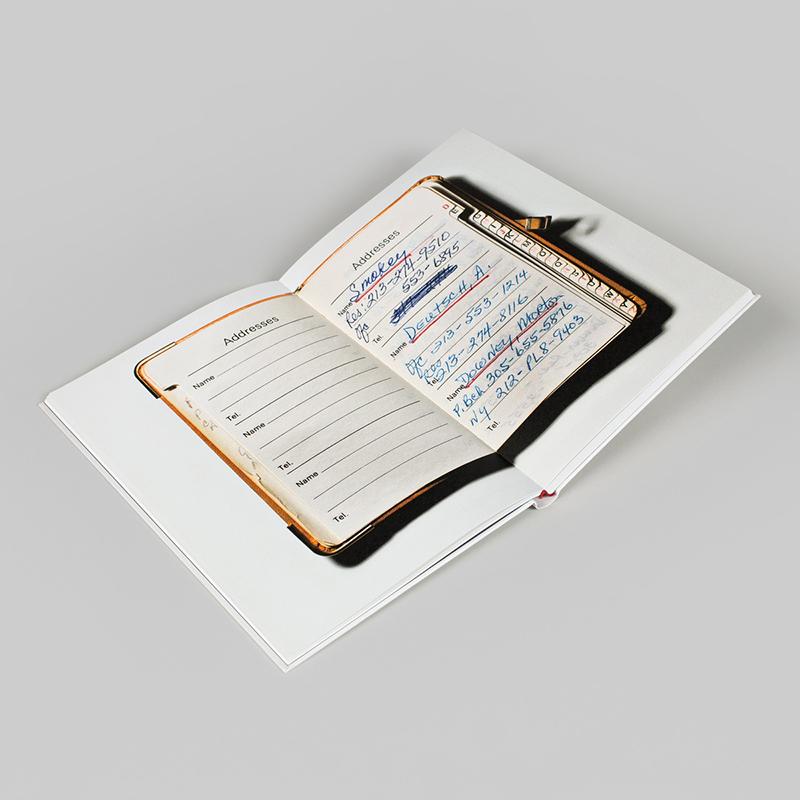 Addresses
Name
Tel.
Name
Tel.
Name
Tel.
Addresses
Name Smokey
Res: 213-274-9510
Ofc 553-6845
Tel.
Name Deutsch, A.
Ofc 213-553-1214
Tel. 213-274-8116
Name Downey, Morton
P. Bch 305-655-5876
NY 212-PL8-9403
Tel.